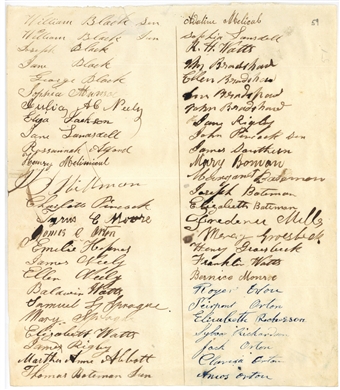 William Black Sen
William Black Jun
Joseph Black
Jane Black
George Black
Sophia
Julia A C Neely
Eliza Jackson
Jane Lunsdell
Rossannah
Henry
Wikman
Charlott Pincock
C Moore
James C Orton
Emelie Haynes
James Neely
Ellen Neely
Baldwin Watts
Samuel L Sprague
Mary Sprague
Elizabeth Watts
James Rigby
Martha Anne Abbott
Thomas Bateman Sen
59
Sophia Lunsdell
R. H. Watts
Wm Bradshaw
Ellen Bradshaw
Bradshaw
John Bradshaw
Jane Rigby
John Pincock Sen
James Southern
Mary Boman
Margaret Bateman
Joseph Bateman
Elizabeth Bateman
Mills
Mercy Groesbeck
Henry Groesbeck
Franklin Watts
Bernice Monroe
Roger Orton
Pierpont Orton
Elizabeth Richardson
Sylvia Richardson
Jack Orton
Clarisa Orton
Amos Orton